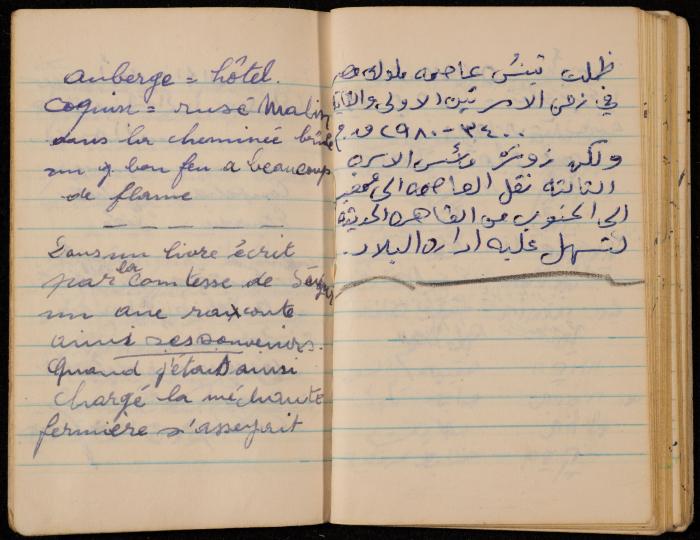 auberge = hôtel.
Coquin = rusé Malin
dans la cheminée brûle
un g. bon feu a beaucoup
de flame
Dans un livre écrit
par la Comtesse de Ségur
un ane raxconte
ainsi ses souvenirs.
Quand j'étais ainsi
chargé la méchante
fermière s'asseyait
ظلت تينس عاصمه ملوك مصر
في زمن الاسرتين الاولى والثانية
٣٤٠٠ - ٢٩٨٠ ق م
ولكن زوسر مؤسس الاسره
الثالثة نقل العاصمه الى ممفيس
الى الجنوب من القاهره الحديثة
لتسهل عليه اداره البلاد.